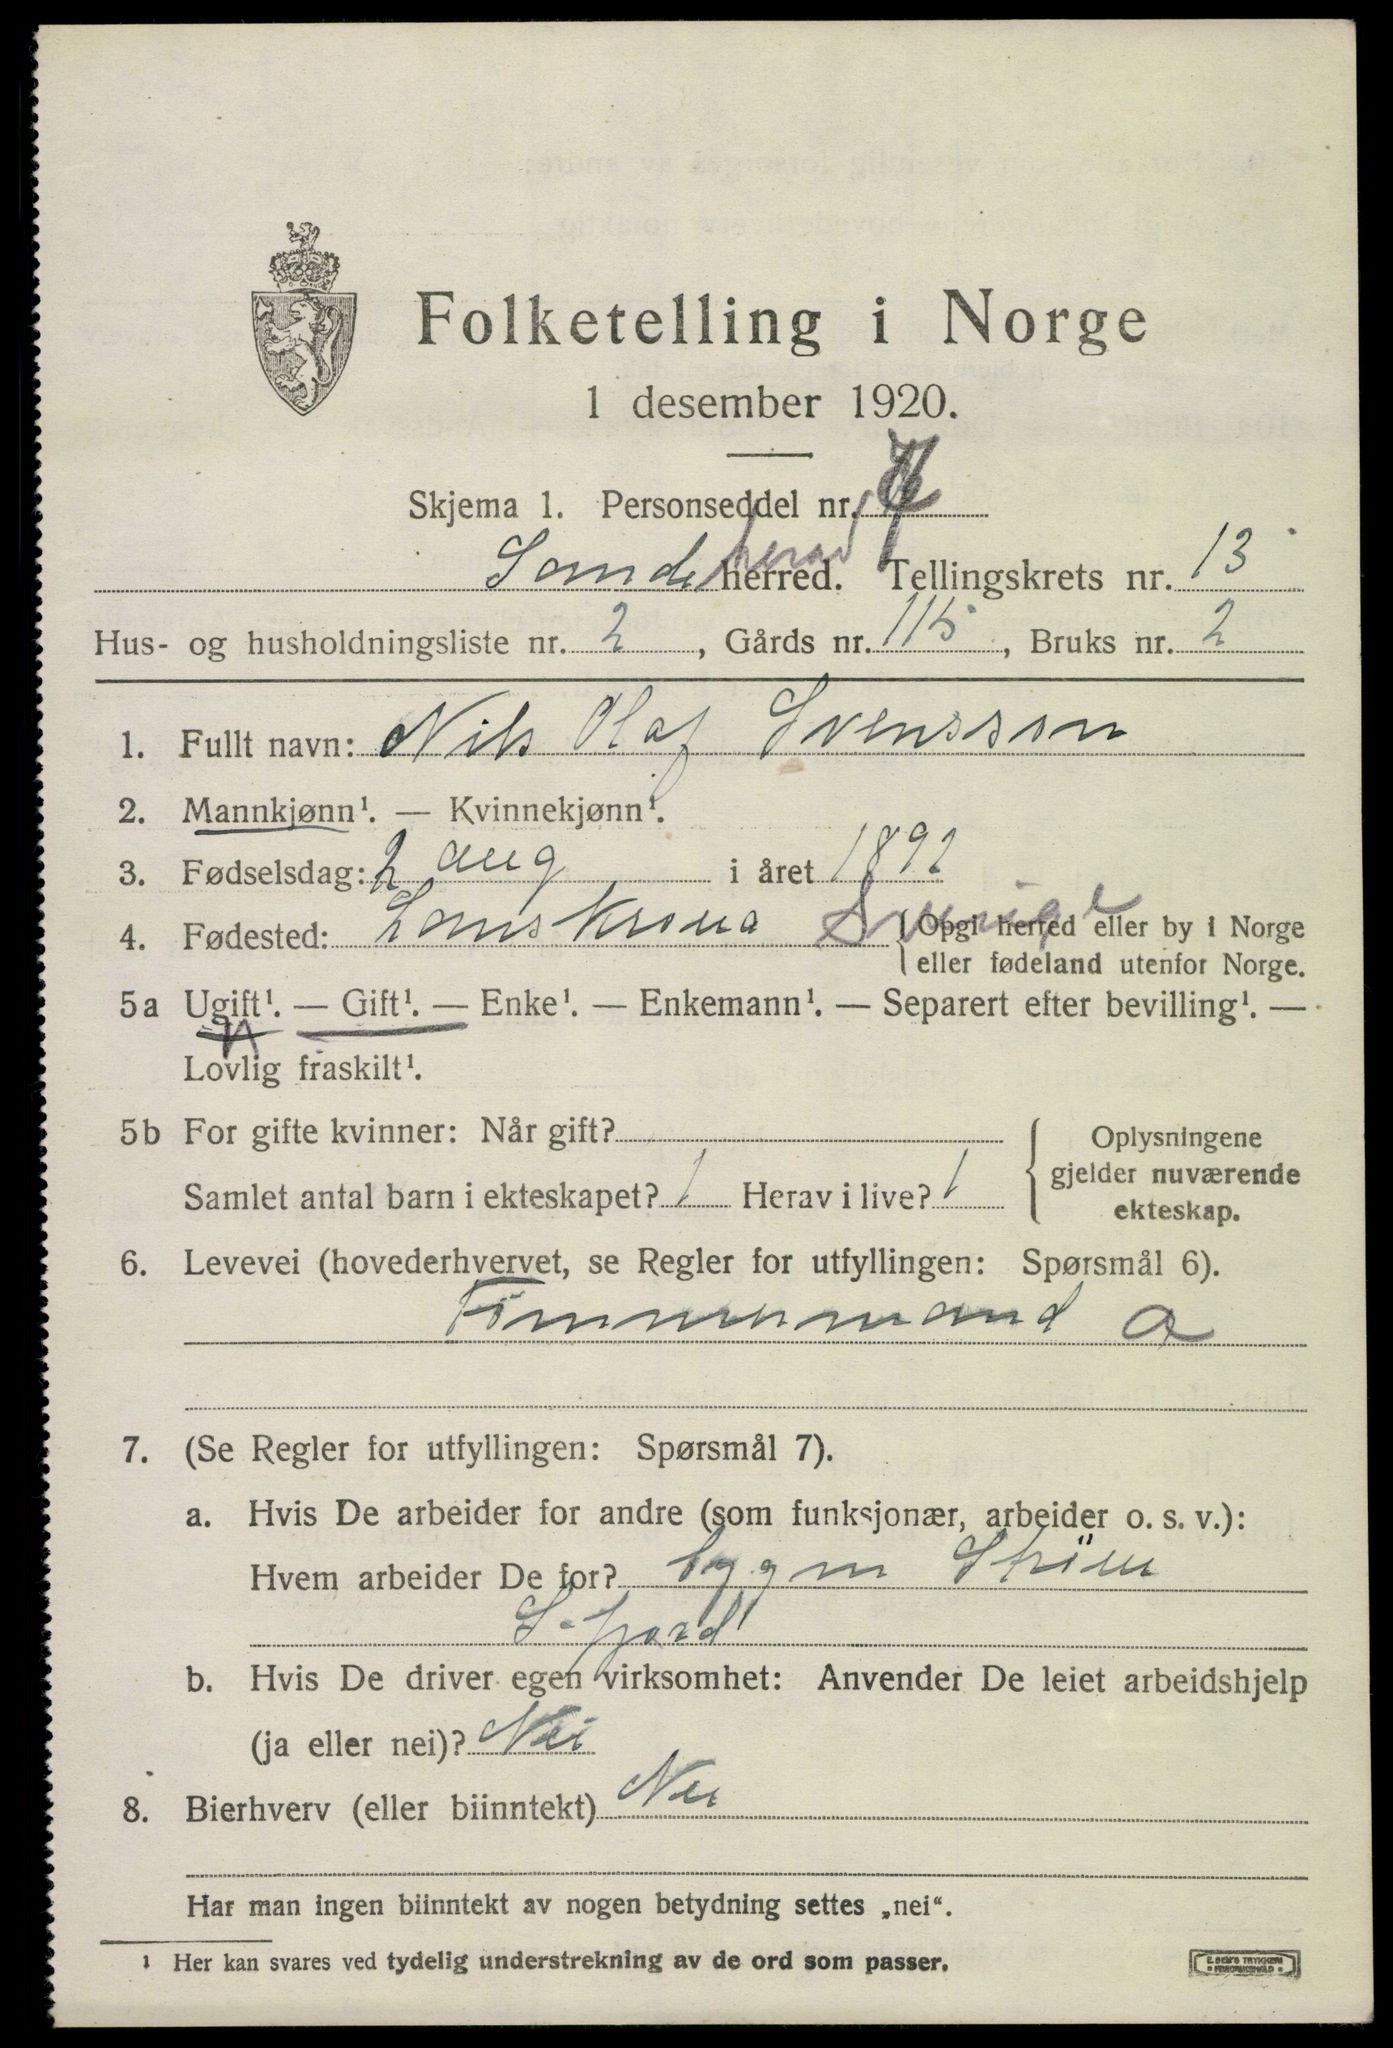 Folketelling i Norge
1 desember 1920.
Skjema 1. Personseddel nr. 7
Sandeherad herred. Tellingskrets nr. 13
Hus- og husholdningsliste nr. 2, Gårds nr. 115, Bruks nr. 2
1. Fullt navn: Nils Olaf Svensson
2. Mannkjønn¹. — Kvinnekjønn¹.
3. Fødselsdag: 2 aug i året 1892
4. Fødested: Lanskrona Sverige { Opgi herred eller by i Norge
eller fødeland utenfor Norge.
5a Ugift¹. — Gift¹. — Enke¹. — Enkemann¹. — Separert efter bevilling¹. —
Lovlig fraskilt¹.
5b For gifte kvinner: Når gift?
Samlet antal barn i ekteskapet? 1 Herav i live? 1
{ Oplysningene
gjelder nuværende
ekteskap.
6. Levevei (hovederhvervet, se Regler for utfyllingen: Spørsmål 6).
Tömmermand a
7. (Se Regler for utfyllingen: Spørsmål 7).
a. Hvis De arbeider for andre (som funksjonær, arbeider o. s. v.):
Hvem arbeider De for? bygm Ström
S-fjord
b. Hvis De driver egen virksomhet: Anvender De leiet arbeidshjelp
(ja eller nei)? Nei
8. Bierhverv (eller biinntekt) Nei
Har man ingen biinntekt av nogen betydning settes „nei“.
¹ Her kan svares ved tydelig understrekning av de ord som passer.
E. SEM'S TRYKKERI
FREDRIKSHALD